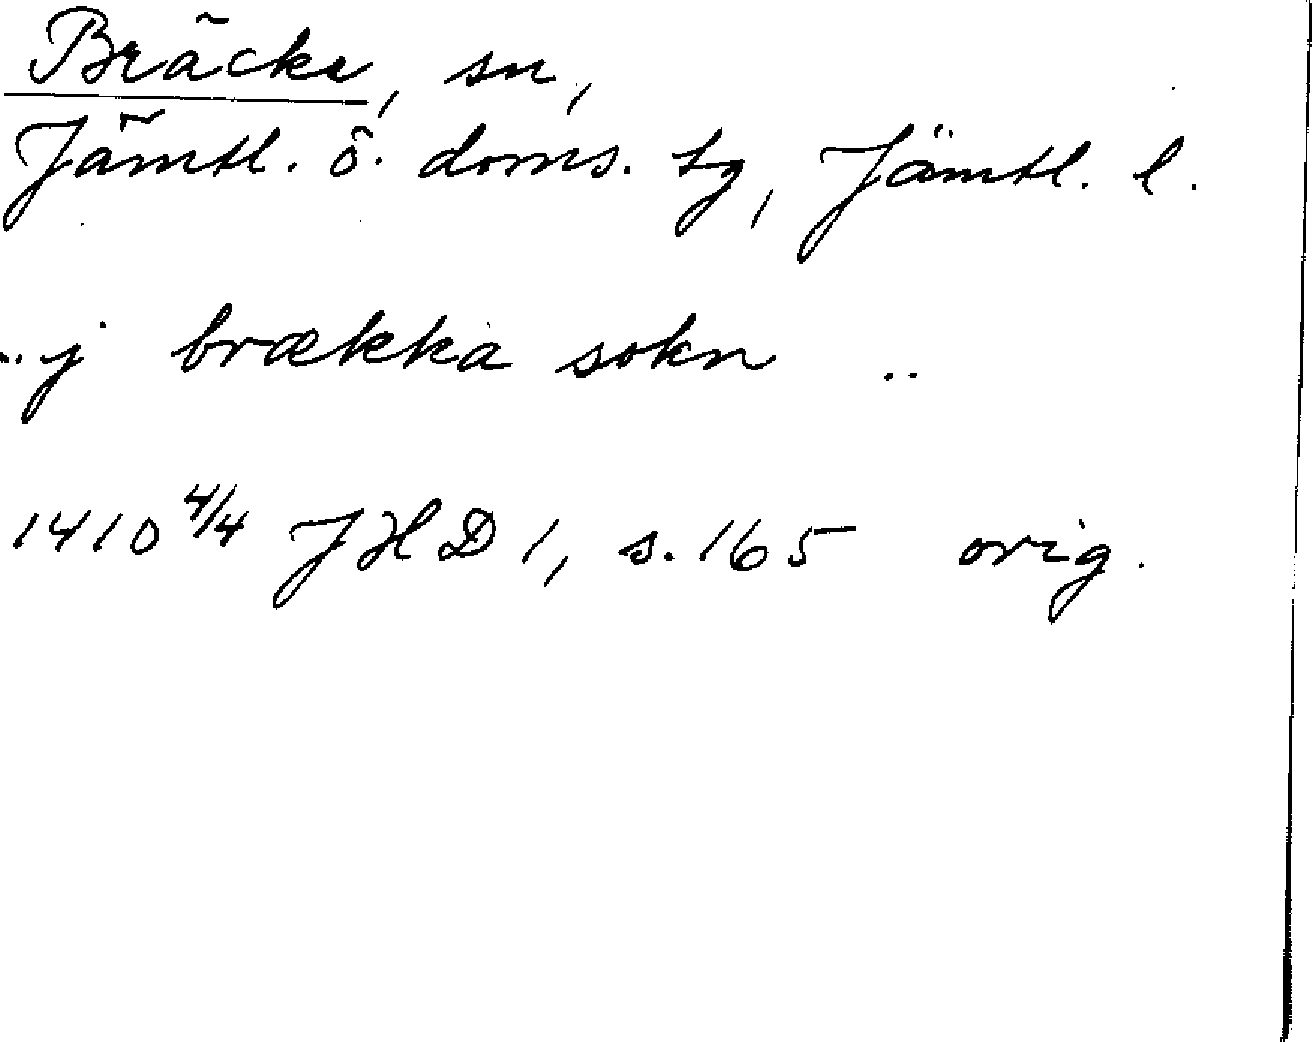 Bräcke, sn,
Jämtl. ö. doms. tg, Jämtl. l.
..j brækka sokn ..
1410 4/4 JHD 1, s. 165 orig.